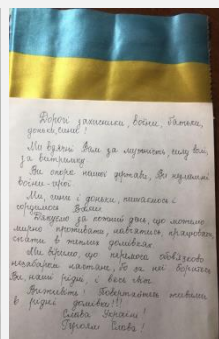 Дорогі захисники, воїни, батьки,
доньки, сини!
Ми вдячні Вам за мужність, силу волі,
за витримку.
Ви опора нашої держави, Ви незламні
воїни-герої.
Ми, сини і доньки, пишаємось і
горимось Вами.
Дякуємо за кожний день, що можемо
мирно проживати, навчатись, працювати,
спати в теплих домівках.
Ми віримо, що перемога обов'язково
незабаром настане, бо за неї боретесь
Ви, наші рідні, і весь світ.
Виживіть! Повертайтесь живими
в рідні домівки!!!
Слава Україні!
Героям Слава!